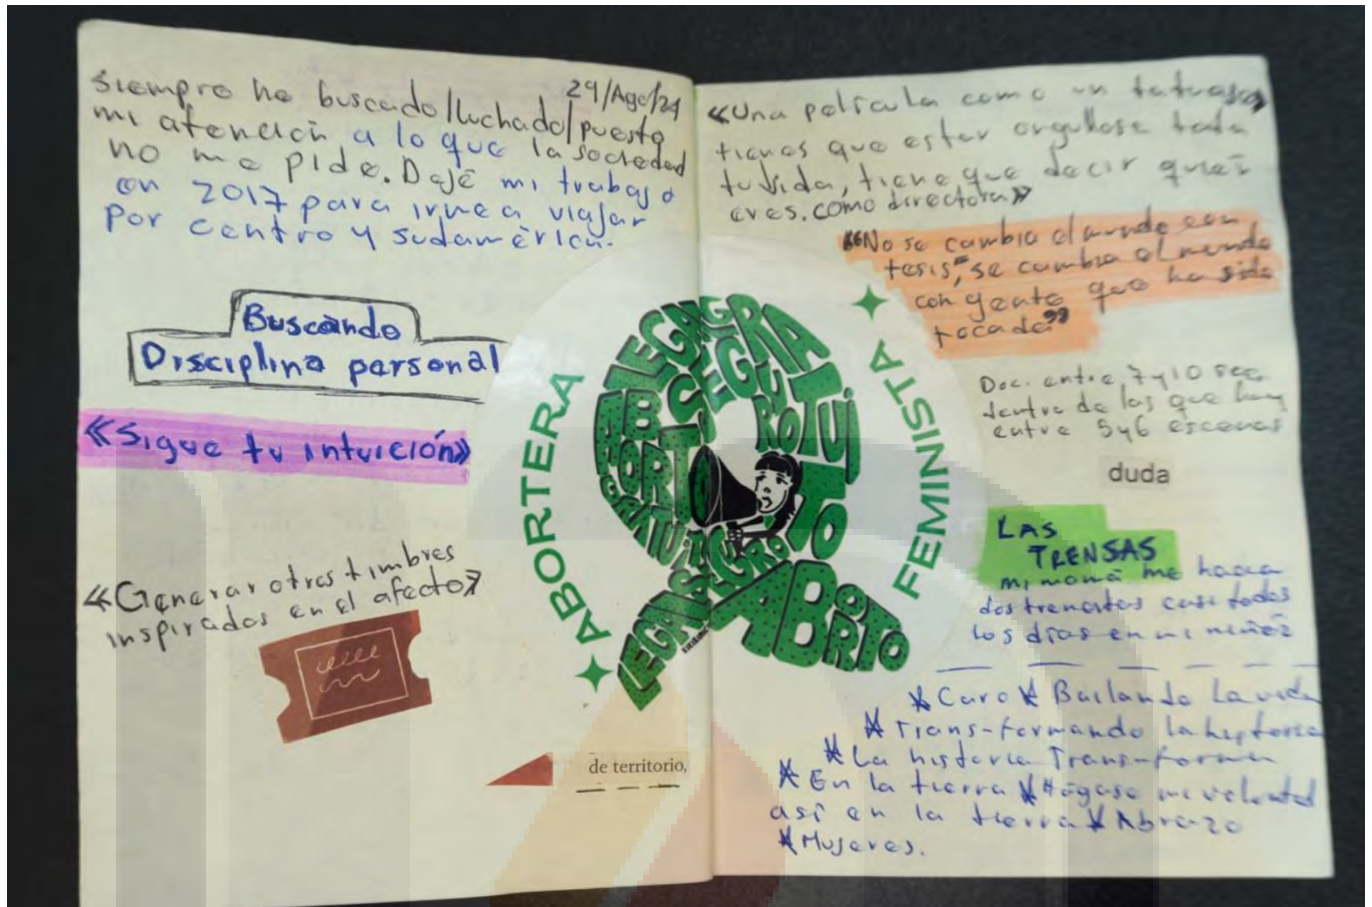 29/Ago/24
Siempre he buscado/luchado/puesto
mi atención a lo que la sociedad
no me pide. Dejé mi trabajo
en 2017 para irme a viajar
por centro y sudamérica.
Buscando
Disciplina personal
«Sigue tu intuición»
«Generar otros timbres
inspirados en el afecto»
de territorio,
ABORTERA
FEMINISTA
LEGAL
SEGURO
GRATUITO
ABORTO
ABORTO
LEGAL
SEGURO
GRATUITO
«Una película como un tatuaje»
tienes que estar orgullosa toda
tu vida, tiene que decir quien
eres. como directora»
"No se cambia el mundo con
tesis, se cambia el mundo
con gente que ha sido
tocada"
Doc. entre 7 y 10 sec.
dentro de las que hay
entre 5 y 6 escenas
duda
LAS
TRENSAS
mi mamá me hacia
dos trensitas casi todos
los días en mi niñez
* Caro * Bailando la vida
* Trans-formando la historia
* La historia Trans-forma
* En la tierra * Hágase mi voluntad
así en la tierra * Abrazo
* Mujeres.